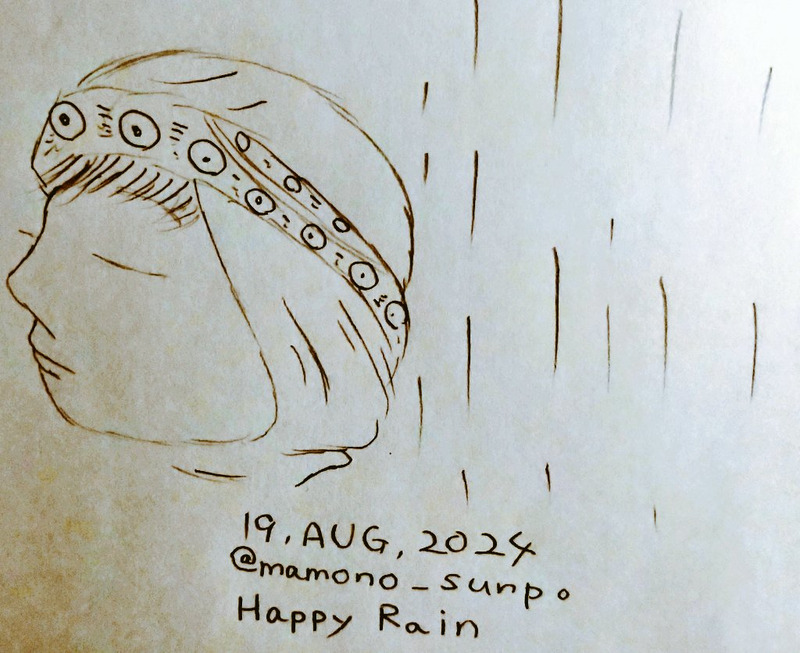 19, AUG, 2024
@mamono_sunpo
Happy Rain